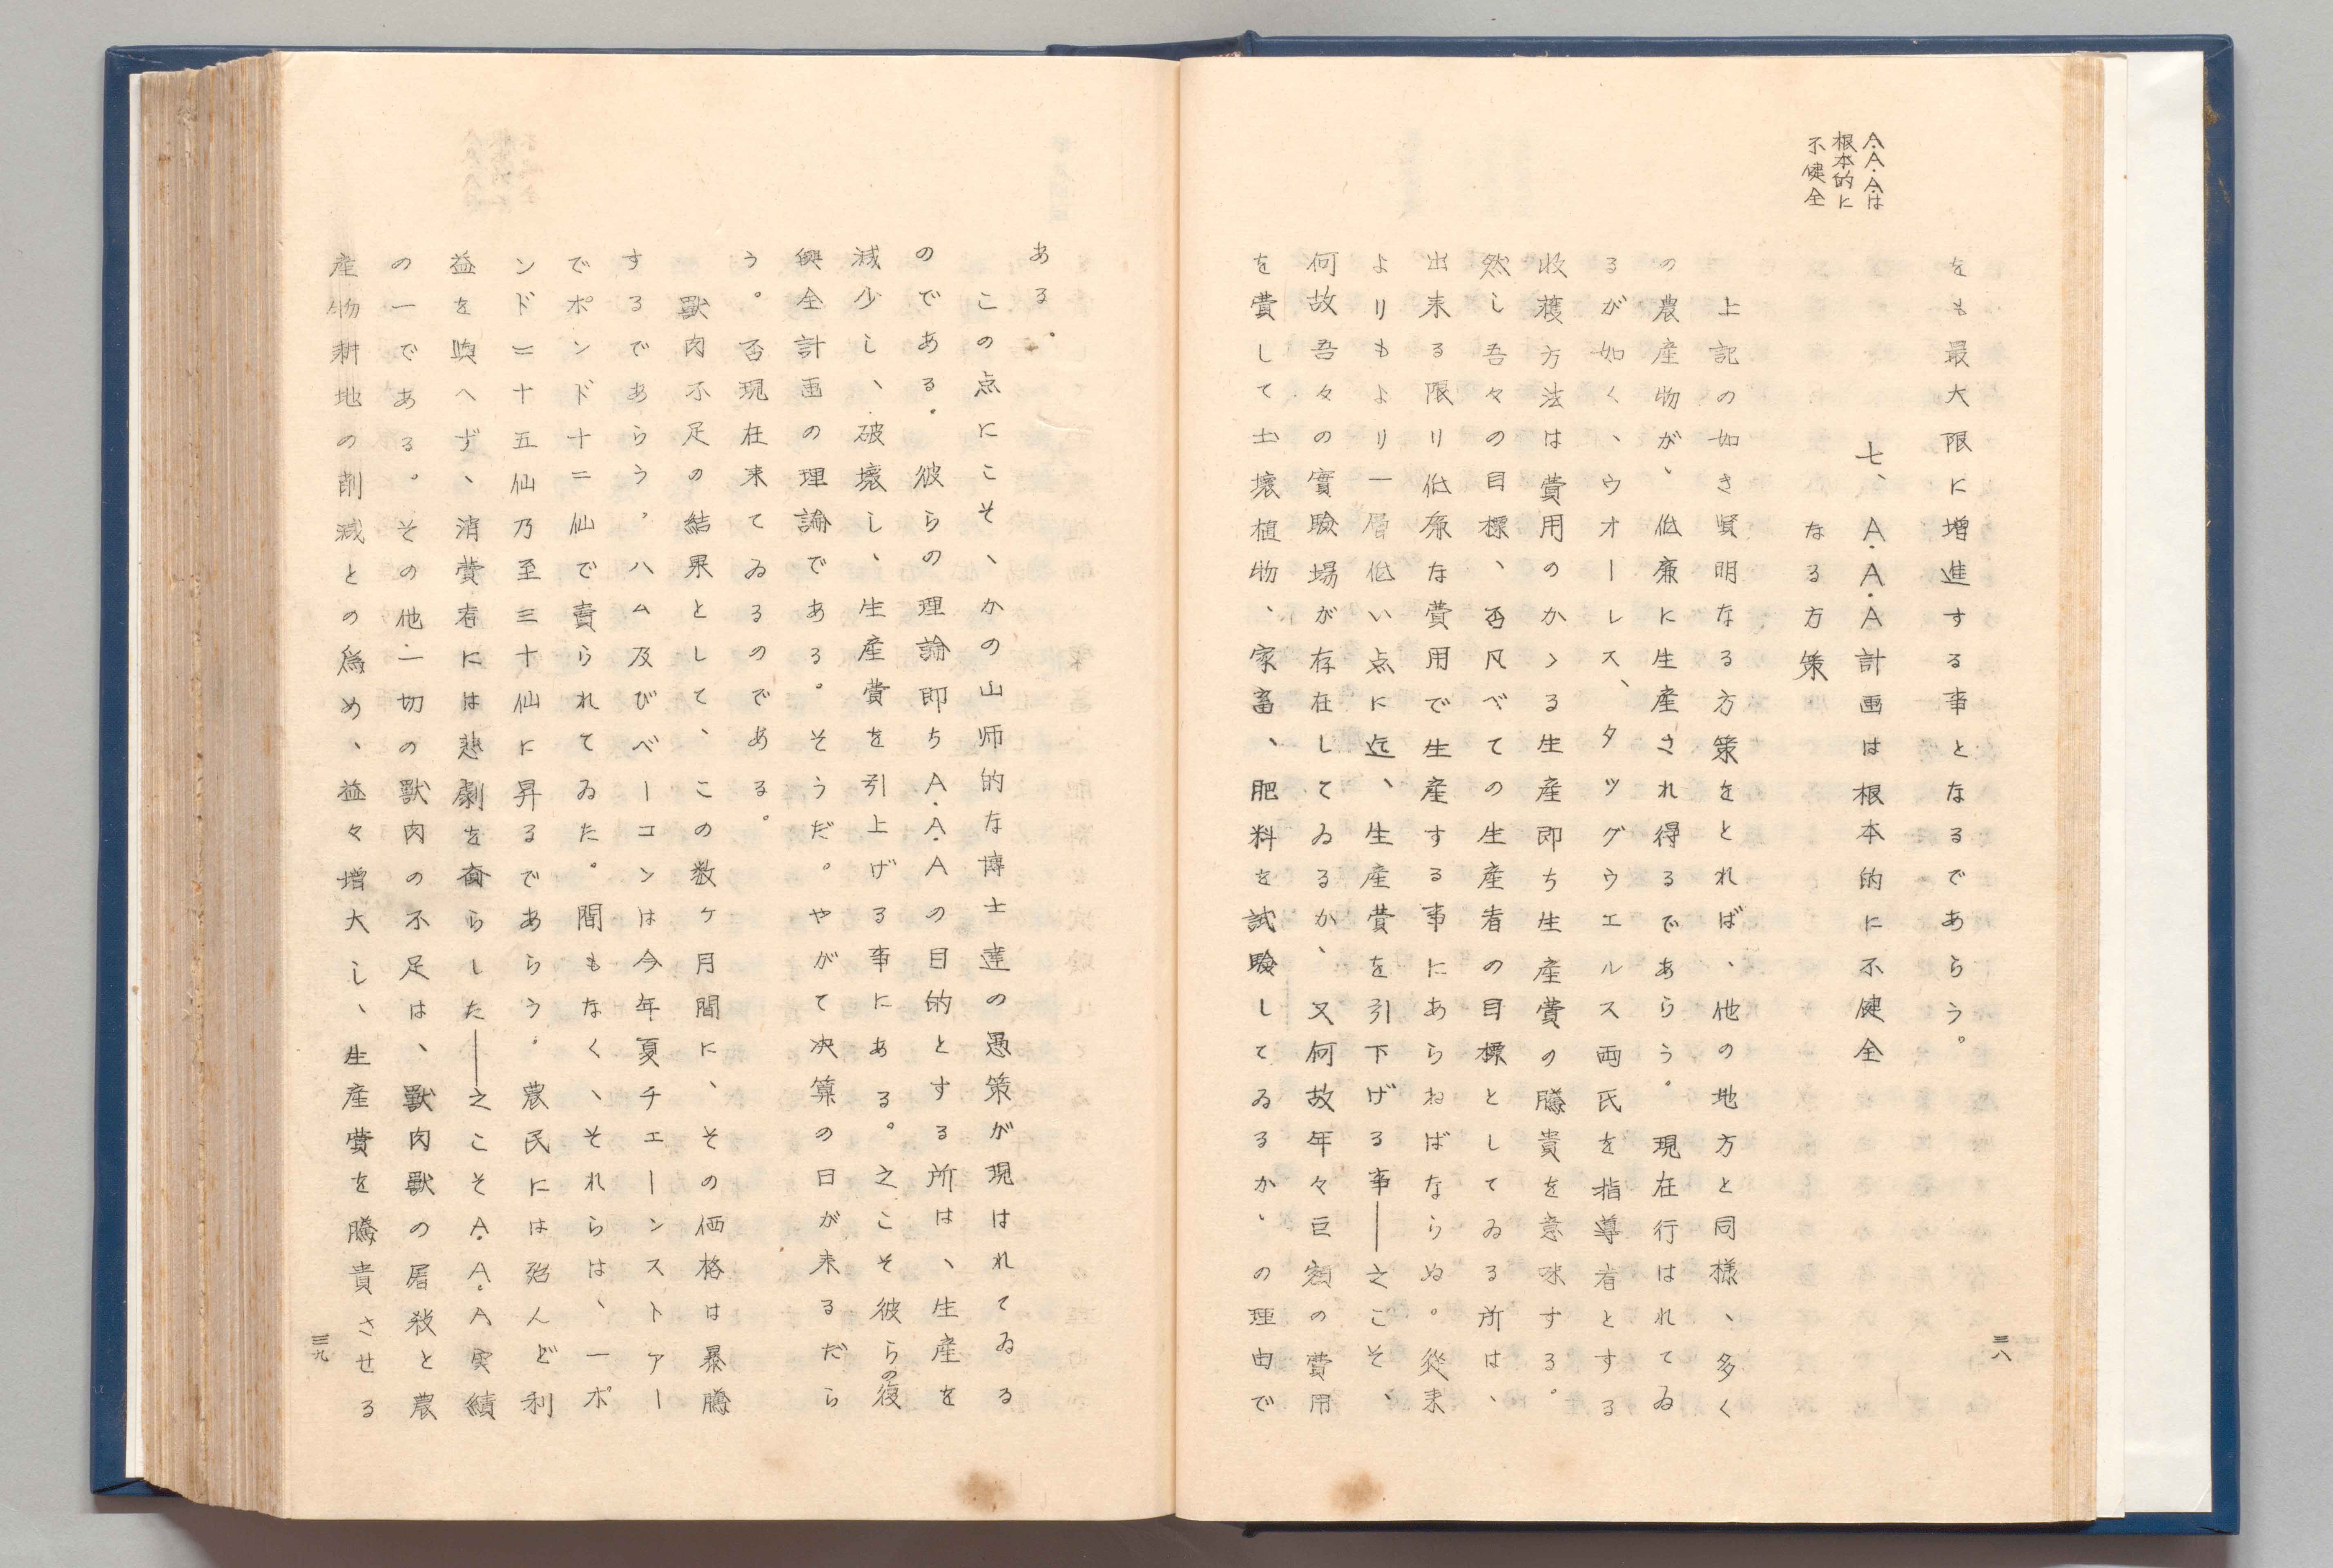 をも最大限に増進する事となるであらう。
A.A.Aは
根本的に
不健全
七、A.A.A計画は根本的に不健全
なる方策
上記の如き賢明なる方策をとれば、他の地方と同様、多く
の農産物が、低廉に生産され得るであらう。現在行はれてゐ
るが如く、ウオーレス、タツグウエルス両氏を指導者とする
收穫方法は費用のかゝる生産即ち生産費の騰貴を意味する。
然し吾々の目標、否凡べての生産者の目標としてゐる所は、
出来る限り低廉な費用で生産する事にあらねばならぬ。從来
よりもより一層低い点に迄、生産費を引下げる事――之こそ、
何故吾々の實験場が存在してゐるか、又何故年々巨額の費用
を費して土壌植物、家畜、肥料を試験してゐるか、の理由で
三八
ある。
この点にこそ、かの山师的な博士達の愚策が現はれてゐる
のである。彼らの理論即ちA.A.Aの目的とする所は、生産を
減少し、破壞し、生産費を引上げる事にある。之こそ彼らの復
興全計画の理論である。そうだ。やがて決算の日が来るだら
う。否現在来てゐるのである。
獸肉不足の結果として、この数ヶ月間に、その価格は暴騰
するであらう。ハム及びベーコンは今年夏チエーンストアー
でポンド十二仙で賣られてゐた。間もなく、それらは、一ポ
ンド二十五仙乃至三十仙に昇るであらう。農民には殆んど利
益を與へず、消費者には悲劇を齎らした――之こそA.A.A実績
の一である。その他一切の獸肉の不足は、獸肉獸の屠殺と農
産物耕地の削減との爲め、益々増大し、生産費を騰貴させる
三九